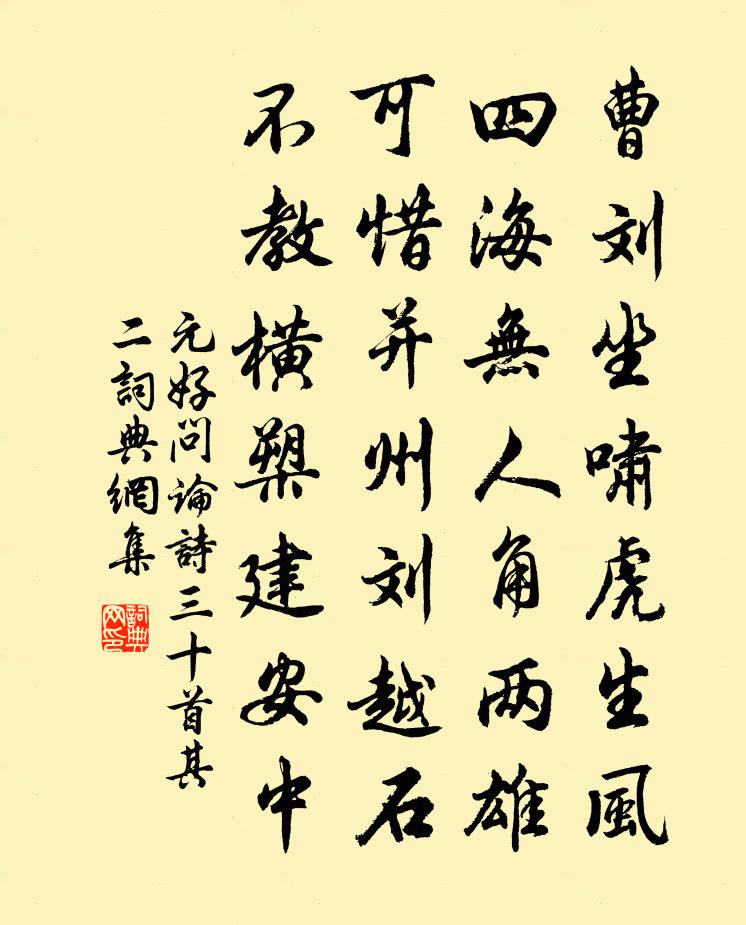 曹刘坐啸虎生風
四海無人角两雄
可惜并州刘越石
不教横槊建安中
元好问论詩三十首其
二詞典網集
詞典网印